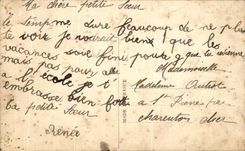 Ma chère petite Sœur
Le temps me dure beaucoup de ne pas
te voir Je voudrait bien que les
vacances soie fini pour que tu revienne
mais pas pour aller
a la école je t'
embrasse bien fort
ta petite Sœur
Renée
Mademoiselle
Madeleine
a St Pierre par
Charenton Cher
MADE IN FRANCE